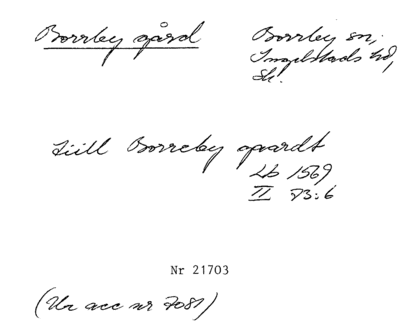 Borrby gård
Borrby sn,
Ingelstads hd,
Sk.
Till Borreby gaardt
Lb 1569
II 73:6
Nr 21703
(Ur acc nr 7081)